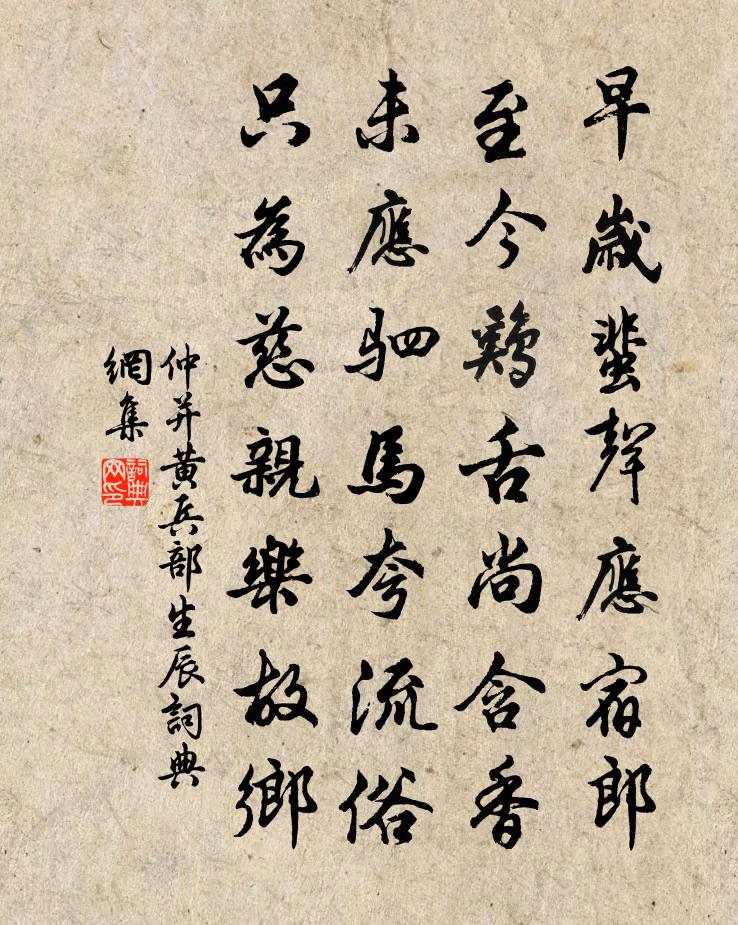 早歲蜚聲應宿郎
至今鷄舌尚含香
未應駟馬夸流俗
只為慈親樂故鄉
仲并黃兵部生辰詞典
網集
詞典
网印